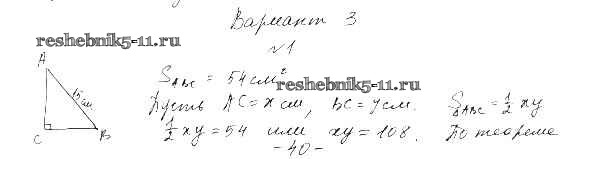 Вариант 3
reshebnik5-11.ru
№1
A
15 см
C
B
S ABC = 54 см²
reshebnik5-11.ru
Пусть AC = x см, BC = y см. S△ABC = 1/2 xy
1/2 xy = 54 или xy = 108. По теореме
- 40 -